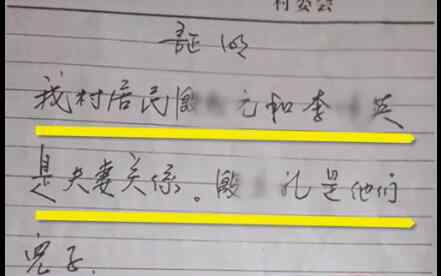 村委会
証明
我村居民殷 元和李 英
是夫妻关係。殷 礼是他们
児子.